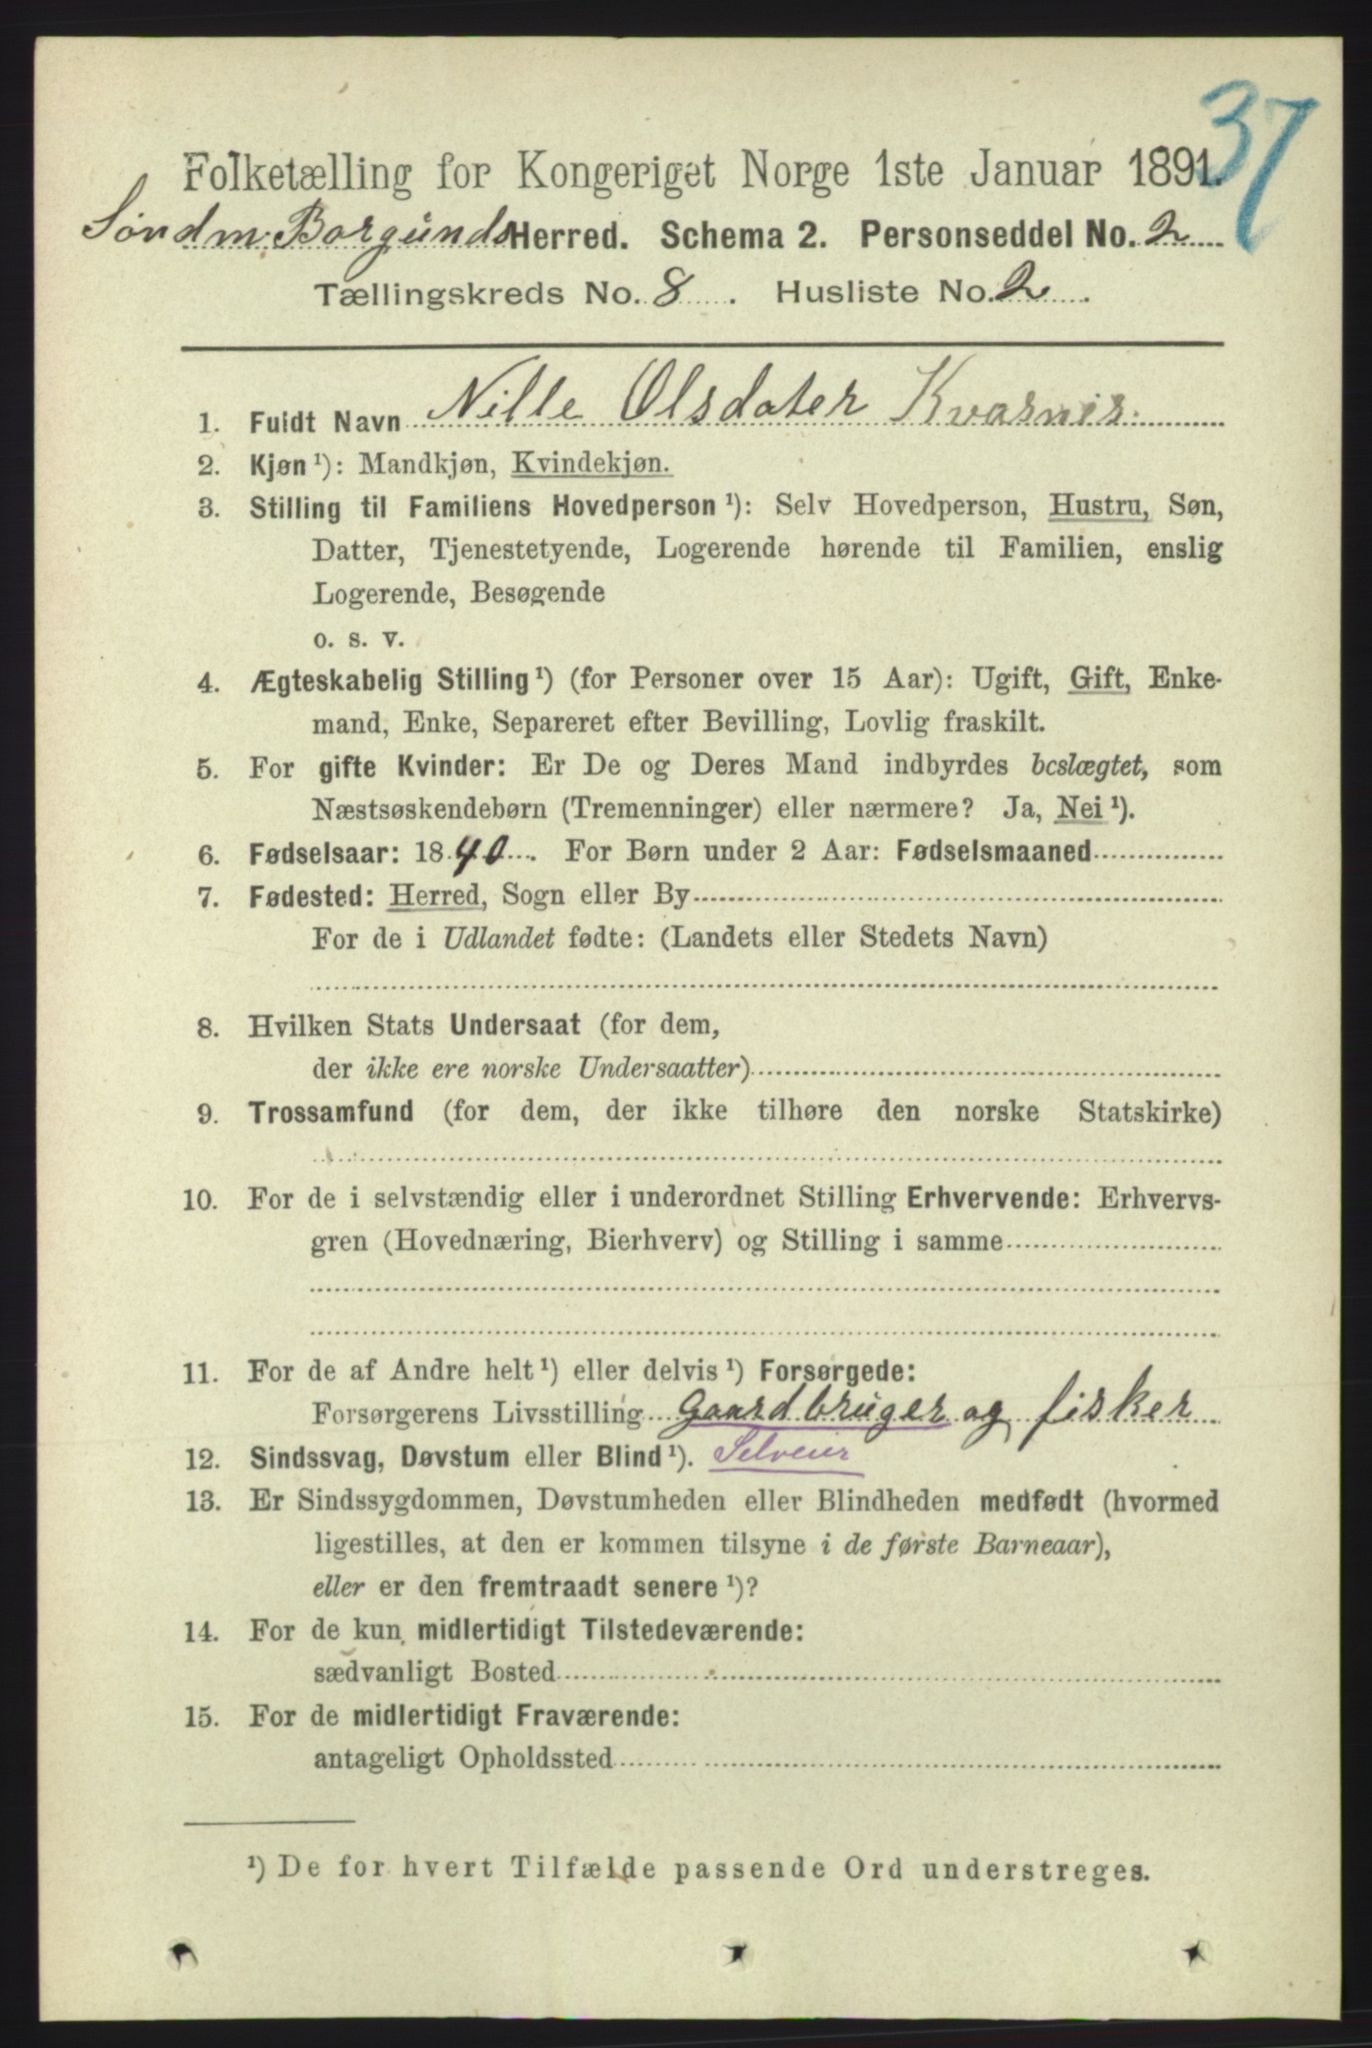 37
Folketælling for Kongeriget Norge 1ste Januar 1891.
Søndm. Borgunds Herred. Schema 2. Personseddel No. 2
Tællingskreds No. 8. Husliste No. 2.
1. Fuldt Navn Nille Olsdater Kvasnes.
2. Kjøn ¹): Mandkjøn, Kvindekjøn.
3. Stilling til Familiens Hovedperson ¹): Selv Hovedperson, Hustru, Søn,
Datter, Tjenestetyende, Logerende hørende til Familien, enslig
Logerende, Besøgende
o. s. v.
4. Ægteskabelig Stilling ¹) (for Personer over 15 Aar): Ugift, Gift, Enke-
mand, Enke, Separeret efter Bevilling, Lovlig fraskilt.
5. For gifte Kvinder: Er De og Deres Mand indbyrdes beslægtet, som
Næstsøskendebørn (Tremenninger) eller nærmere? Ja, Nei ¹).
6. Fødselsaar: 1840. For Børn under 2 Aar: Fødselsmaaned
7. Fødested: Herred, Sogn eller By
For de i Udlandet fødte: (Landets eller Stedets Navn)
8. Hvilken Stats Undersaat (for dem,
der ikke ere norske Undersaatter)
9. Trossamfund (for dem, der ikke tilhøre den norske Statskirke)
10. For de i selvstændig eller i underordnet Stilling Erhvervende: Erhvervs-
gren (Hovednæring, Bierhverv) og Stilling i samme
11. For de af Andre helt ¹) eller delvis ¹) Forsørgede:
Forsørgerens Livsstilling Gaardbruger og fisker
12. Sindssvag, Døvstum eller Blind ¹). Selveier
13. Er Sindssygdommen, Døvstumheden eller Blindheden medfødt (hvormed
ligestilles, at den er kommen tilsyne i de første Barneaar),
eller er den fremtraadt senere ¹)?
14. For de kun midlertidigt Tilstedeværende:
sædvanligt Bosted
15. For de midlertidigt Fraværende:
antageligt Opholdssted
¹) De for hvert Tilfælde passende Ord understreges.